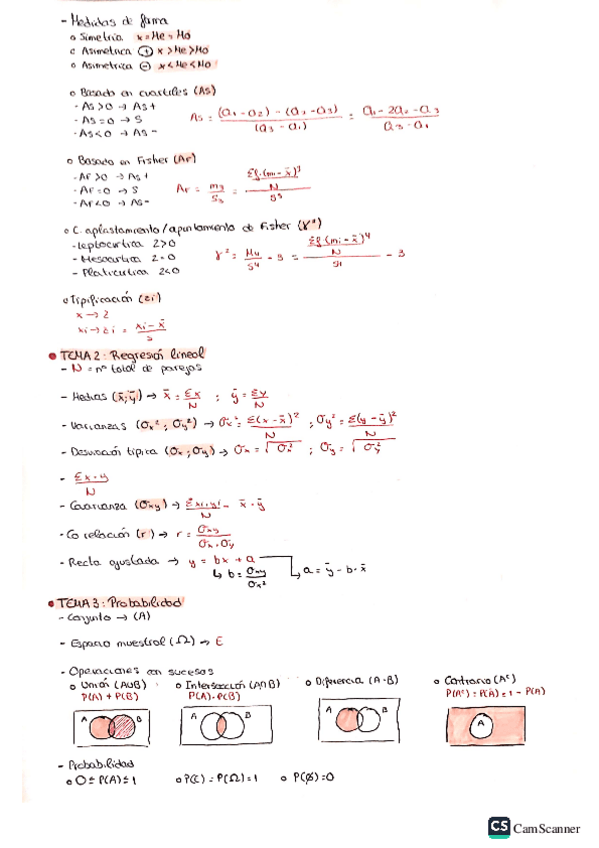 - Medidas de forma
o Simetria x = Me = Mo
o Asimetrica (+) x > Me > Mo
o Asimetrica (-) x < Me < Mo
o Basado en cuartiles (As)
- As > 0 → As +
- As = 0 → S
- As < 0 → As -
o Basado en Fisher (Ar)
- Ar > 0 → As +
- Ar = 0 → S
- Ar < 0 → As -
o C. aplastamiento / apuntamiento de Fisher (γ²)
- Leptocurtica 2 > 0
- Mesocurtica 2 = 0
- Platicurtica 2 < 0
o Tipificación (zi)
x → z
xi → zi = (xi - x̄) / s
• TEMA 2: Regresión lineal
- N = nº total de parejas
- Medias (x̄; ȳ) → x̄ = Σx / N ; ȳ = Σy / N
- Varianzas (σx²; σy²) → σx² = Σ(x - x̄)² / N ; σy² = Σ(y - ȳ)² / N
- Desviación típica (σx; σy) → σx = √σx² ; σy = √σy²
- Σx·y / N
- Covarianza (σxy) → Σxi·yi / N - x̄·ȳ
- Co relación (r) → r = σxy / σx·σy
- Recta ajustada → y = bx + a
↳ b = σxy / σx² ↳ a = ȳ - b·x̄
• TEMA 3: Probabilidad
- Conjunto → (A)
- Espacio muestral (Ω) → E
- Operaciones con sucesos
o Unión (A∪B) o Intersección (A∩B) o Diferencia (A-B) o Contrario (Aᶜ)
P(A) + P(B) P(A)·P(B) P(Aᶜ) = P(Ā) = 1 - P(A)
A B A B A B A
- Probabilidad
o 0 ≤ P(A) ≤ 1 o P(E) = P(Ω) = 1 o P(∅) = 0
CS CamScanner